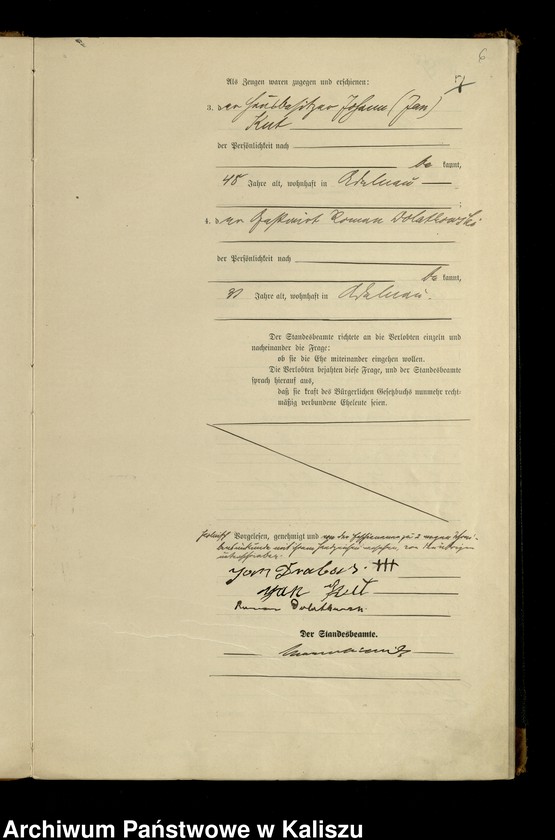 6
Als Zeugen waren zugegen und erschienen:
3. der Hausbesitzer Johann (Jan)
Kut
der Persönlichkeit nach
be kannt,
48 Jahre alt, wohnhaft in Adelnau
;
4. der Gastwirt Roman Dolatkowski
der Persönlichkeit nach
be kannt,
Jahre alt, wohnhaft in Adelnau.
Der Standesbeamte richtete an die Verlobten einzeln und
nacheinander die Frage:
ob sie die Ehe miteinander eingehen wollen.
Die Verlobten bejahten diese Frage, und der Standesbeamte
sprach hierauf aus,
daß sie kraft des Bürgerlichen Gesetzbuchs nunmehr recht-
mäßig verbundene Eheleute seien.
Vorgelesen, genehmigt und von der zu 2 wegen Schreib-
unterschrieben
Jan +++
Jan Kut
Roman
Der Standesbeamte.
Archiwum Państwowe w Kaliszu